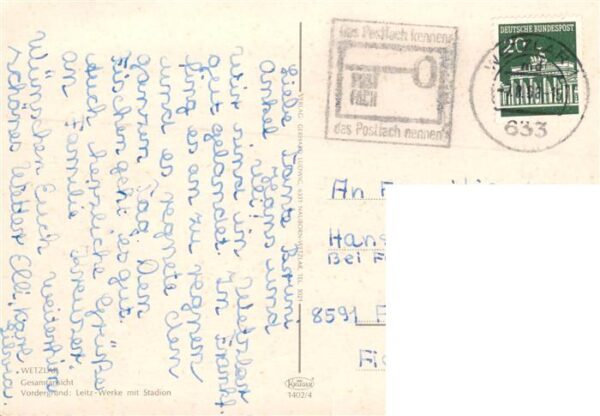 Liebe Tante Berni
Onkel Hans und
Uli!
Wir sind in Wetzlar
gut gelandet. In Frankf.
fing es an zu regnen
und es regnete den
ganzen Tag. Den
Fischen geht es gut.
Auch herzliche Grüße
an Familie Kreuzer.
Wünschen Euch weiterhin
schönes Wetter Elli, Karl
Silvia
WETZLAR
Gesamtansicht
Vordergrund: Leitz-Werke mit Stadion
VERLAG GERHARD LUDWIG, 6331 NAUBORN-WETZLAR, TEL. 8021
Krüger
1402/4
das Postfach kennen
POST
FACH
das Postfach nennen
DEUTSCHE BUNDESPOST
20
WETZLAR
633
An
Hans
Bei F
8591 F